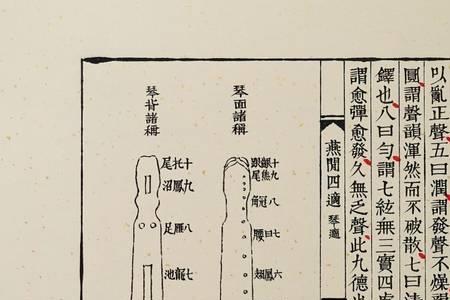 以亂正聲五曰潤謂發聲不燥
圓謂聲韻渾然而不破散七曰
鐸也八曰勻謂七絃無三實四
謂愈彈愈發久無乏聲此九德
燕閒四適 琴適
琴面諸稱
九焦尾
七曰腰
琴背諸稱
十托尾
九鳳沼
八雁足
七龍池